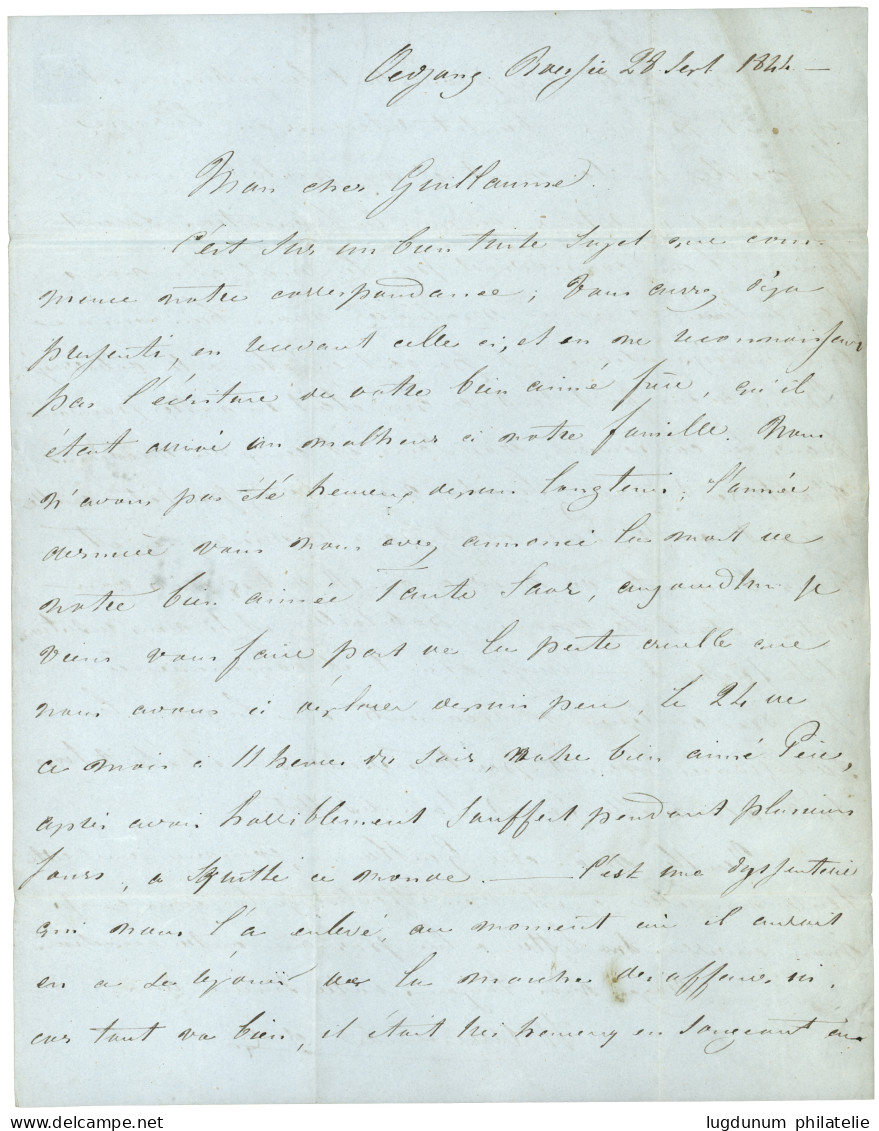 Oedjong Roessie 28 Sept 1844 —
Mon cher Guillaume.
C'est sur un bien triste sujet que com-
mence notre correspondance; Vous aurez déja
pressenti, en recevant celle ci, et en ne reconnoissant
pas l'écriture de votre bien aimé frère, qu'il
était arrivé un malheur à notre famille. Nous
n'avons pas été heureux depuis longtems; l'année
dernière vous nous avez annoncé la mort de
notre bien aimée Tante Saor, aujourdhui je
viens vous faire part de la perte cruelle que
nous avons à déplorer depuis peu. Le 24 de
ce mois à 11 heures du soir, notre bien aimé Père,
après avoir horriblement souffert pendant plusieurs
jours, a quitté ce monde. — C'est une dyssenterie
qui nous l'a enlevé, au moment où il aurait
eu à se réjouir de la marche des affaires ici,
car tout va bien, il était très heureux en songeant au
lugdunum philatelie